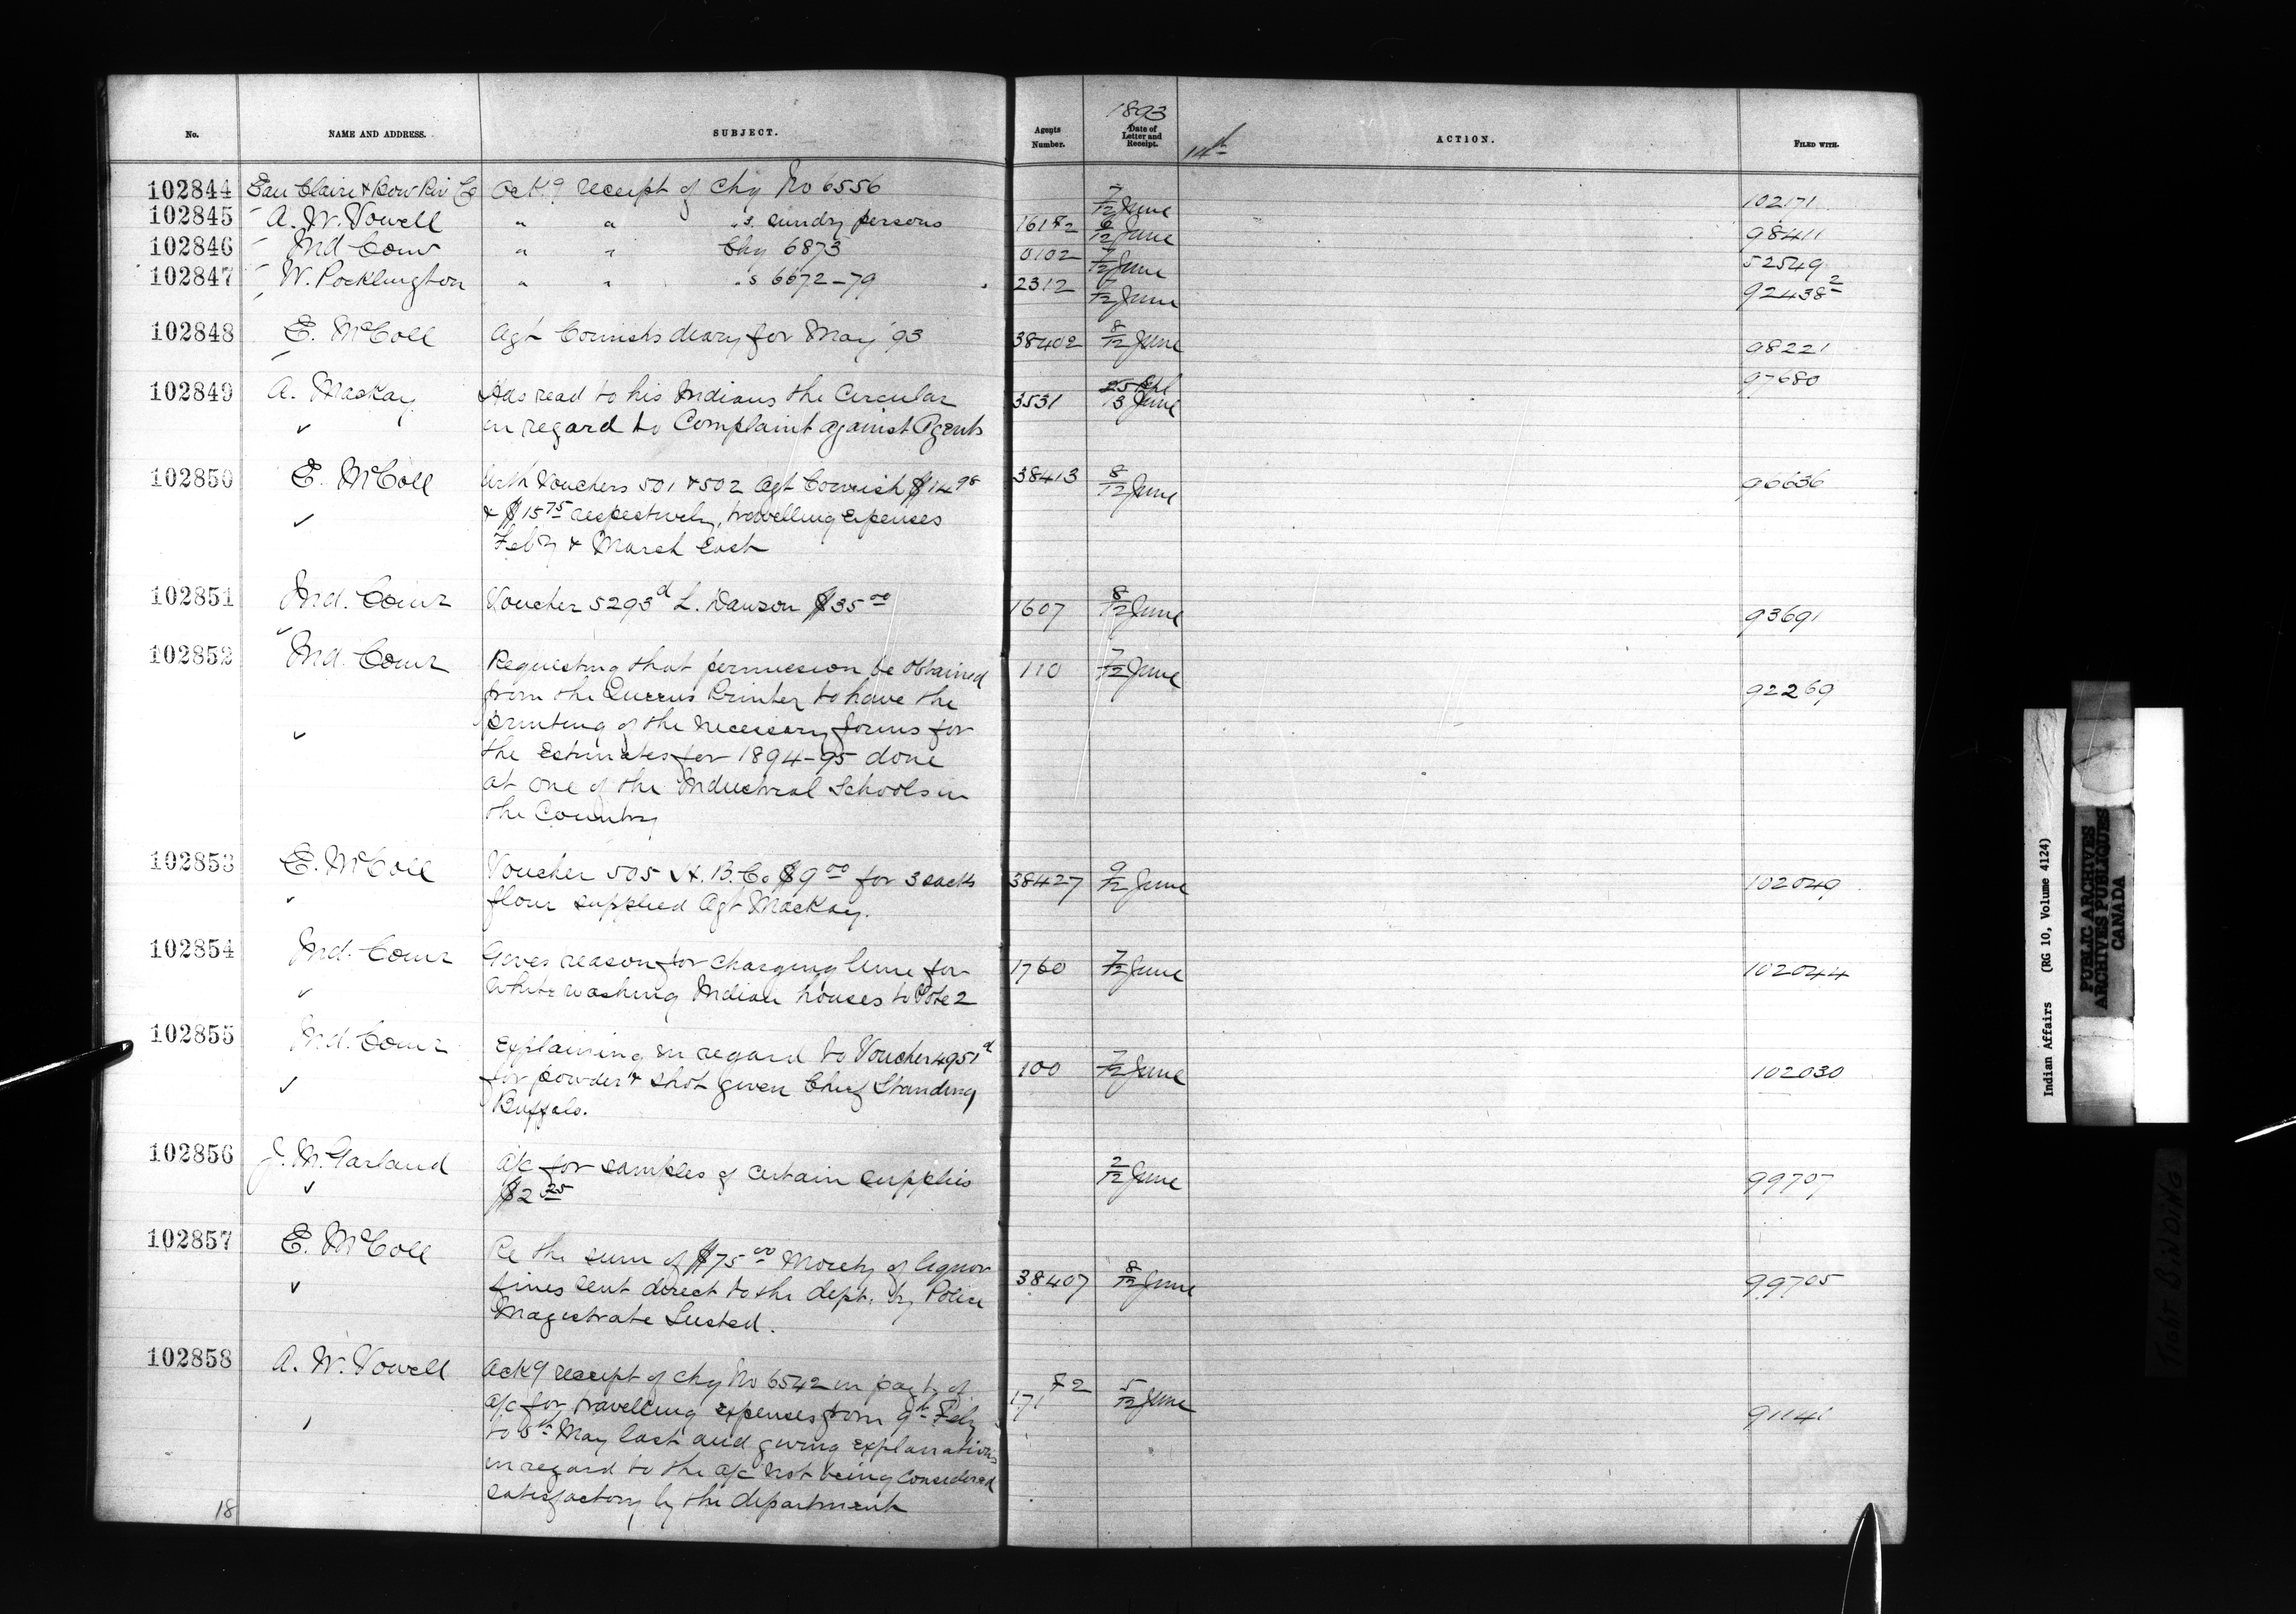 1893
No. NAME AND ADDRESS. SUBJECT. Agents Number. Date of Letter and Receipt. 14th ACTION. FILED WITH.
102844 Eau Claire & Bow Riv Co Ackg receipt of Chq No 6556 7/12 June 102171
102845 A. W. Vowell " " " s. sundry persons 6/12 June 98411
102846 Ind Comr " " Chq 6873 0102 7/12 June 52549
102847 W. Pocklington " " " s 6672-79 2312 7/12 June 92438 2
102848 E. McColl Agt Cornish's diary for May '93 38402 8/12 June 98221
97680
102849 A. Mackay Has read to his Indians the Circular 3531 25 Apl
13 June
in regard to Complaint against Agents
102850 E. McColl With Vouchers 501 & 502 Agt Cornish $14 98 38413 8/12 June 96636
& $15 75 respectively, travelling expenses
Feby & March last
102851 Ind. Comr Voucher 5293d L. Dawson $35 00 1607 8/12 June 93691
102852 Ind. Comr Requesting that permission be obtained 110 7/12 June 92269
from the Queens Printer to have the
printing of the necessary forms for
the Estimates for 1894-95 done
at one of the Industrial Schools in
the Country
102853 E. McColl Voucher 505 H. B. Co $9 00 for 3 sacks 38427 9/12 June 102049
flour supplied Agt Mackay.
102854 Ind. Comr Gives reason for charging lime for 1760 7/12 June 102044
White washing Indian houses to Vote 2
102855 Ind. Comr Explaining in regard to Voucher 4951d 100 7/12 June 102030
for powder & shot given Chief Standing
Buffalo.
102856 J. M. Garland A/c for samples of certain supplies 2/12 June 99707
$2 25
102857 E. McColl Re the sum of $75 00 Moiety of liquor 38407 8/12 June 99705
fines sent direct to the dept. by Police
Magistrate Lusted.
102858 A. W. Vowell Ackg receipt of Chq No 6542 in payt of 171 5/12 June 91141
a/c for travelling expenses from 9th Feby
to May last and giving explanations
in regard to the a/c not being considered
satisfactory by the department
18
Indian Affairs (RG 10, Volume 4124)
PUBLIC ARCHIVES
ARCHIVES PUBLIQUES
CANADA
TIGHT BINDING